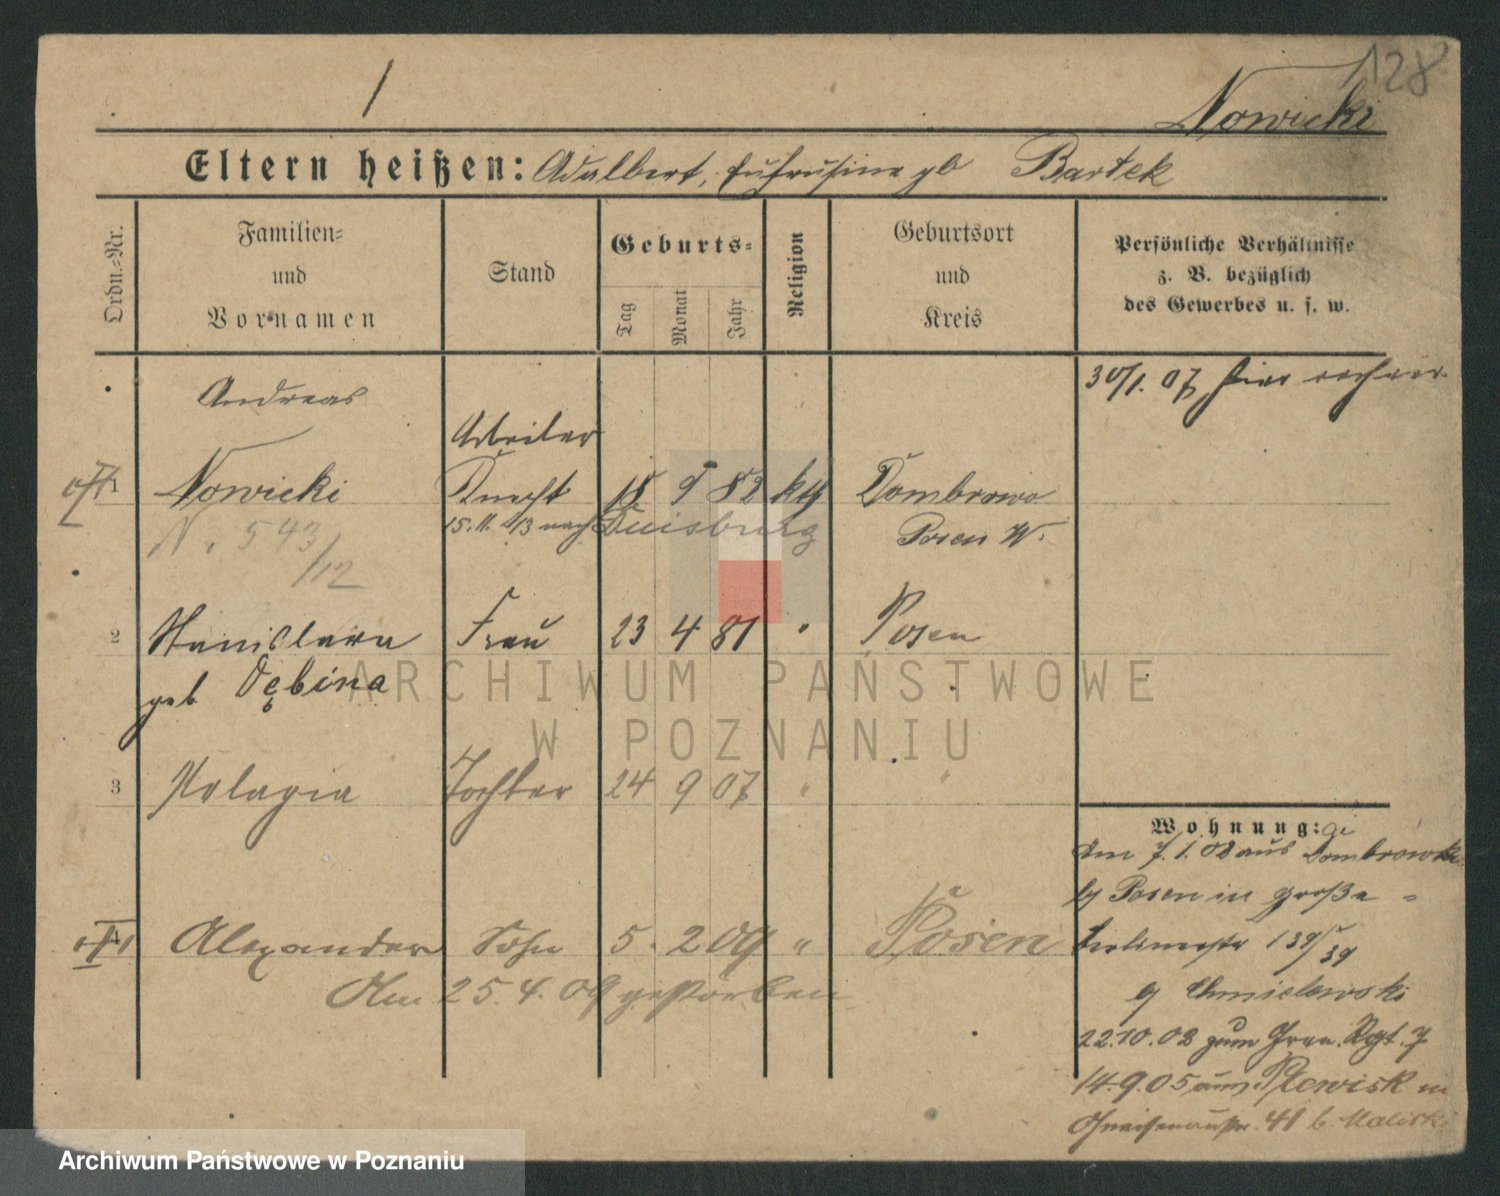 128
Nowicki
Eltern heißen: Adalbert, Eufrusine gb Bartek
Ordn.-Nr.
Familien- und Vornamen
Stand
Geburts-
Tag
Monat
Jahr
Religion
Geburtsort und Kreis
Persönliche Verhältnisse z. B. bezüglich des Gewerbes u. s. w.
30/1. 07 hier
Andreas
Arbeiter
1 Nowicki Knecht 18 9 82 kth Dombrowo
N. 543/12 15.11.13 nach Duisburg Posen W.
2 Stanislawa Frau 23 4 81 " Posen
geb Dębina
ARCHIWUM PAŃSTWOWE
W POZNANIU
3 Pelagia Tochter 24 9 07 "
Wohnung:
Am 7.1.02 aus Dombrowka
by Posen in große-
4 Alexander Sohn 5. 2 09 " Posen
Berlinerstr 139/39
Am 25.4.09 gestorben
b Chmielewski
22.10.02 zum Gren. Rgt. 7
14.9.05 aus Plewisk in
Gneisenaustr. 41 b. Maliski
Archiwum Państwowe w Poznaniu